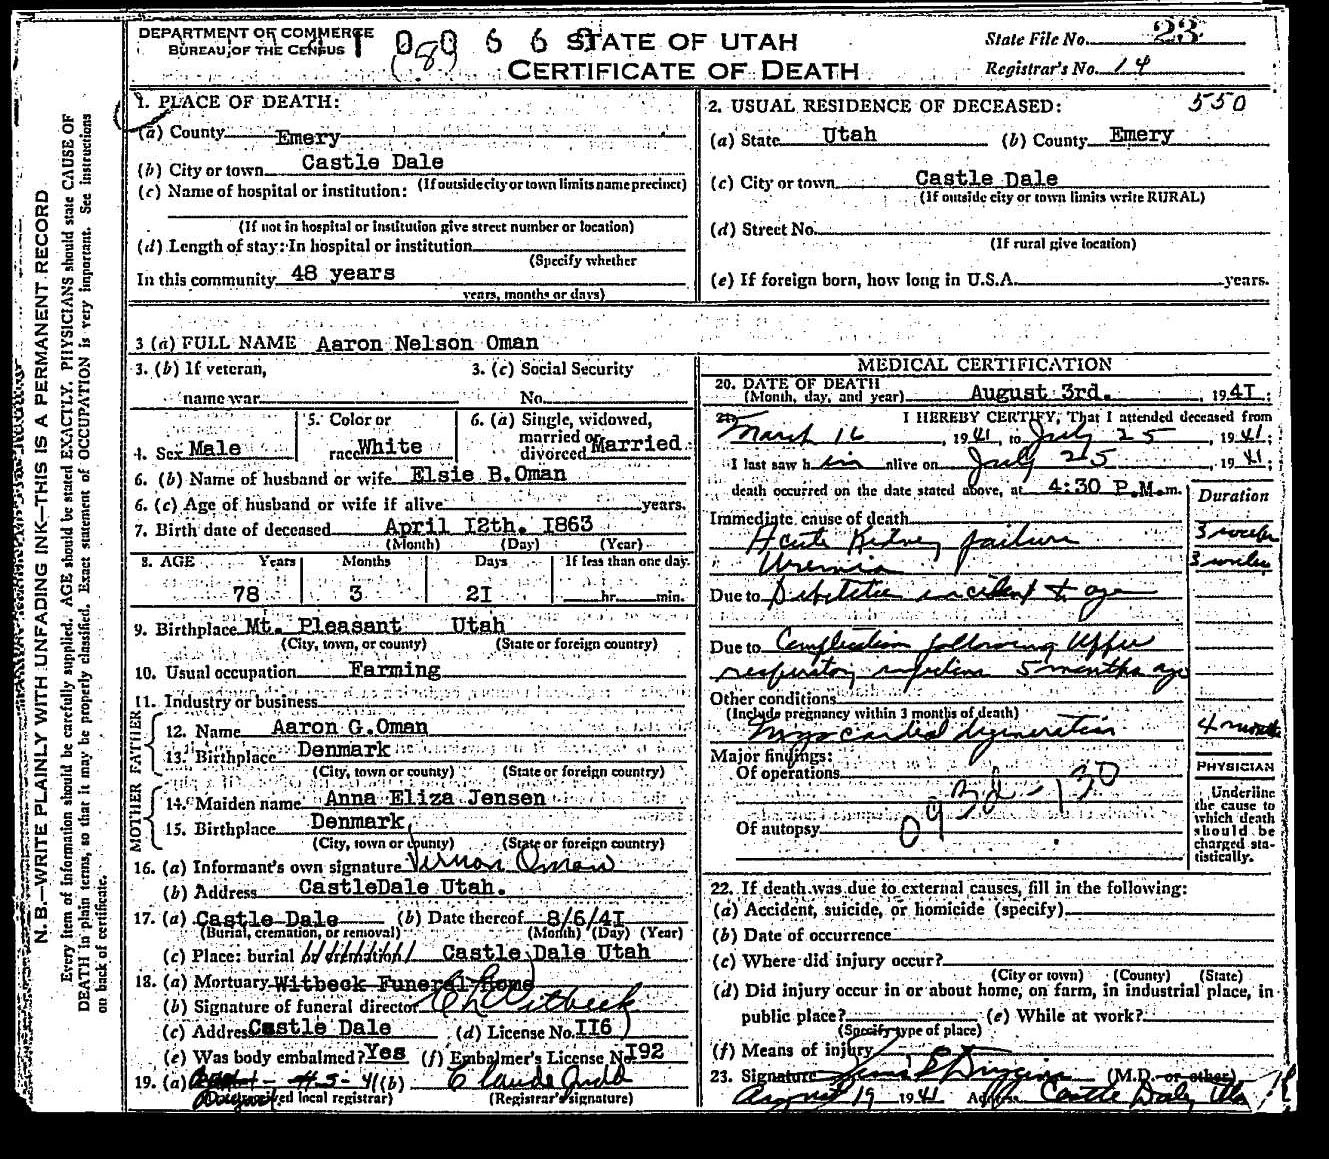 DEPARTMENT OF COMMERCE
BUREAU OF THE CENSUS
(8)
STATE OF UTAH
CERTIFICATE OF DEATH
State File No. 23
Registrar's No. 14
N. B.—WRITE PLAINLY WITH UNFADING INK—THIS IS A PERMANENT RECORD
Every item of information should be carefully supplied. AGE should be stated EXACTLY. PHYSICIANS should state CAUSE OF
DEATH in plain terms, so that it may be properly classified. Exact statement of OCCUPATION is very important. See instructions
on back of certificate.
1. PLACE OF DEATH:
(a) County Emery
(b) City or town Castle Dale
(If outside city or town limits name precinct)
(c) Name of hospital or institution:
(If not in hospital or institution give street number or location)
(d) Length of stay: In hospital or institution
(Specify whether
In this community 48 years
years, months or days)
2. USUAL RESIDENCE OF DECEASED: 550
(a) State Utah (b) County Emery
(c) City or town Castle Dale
(If outside city or town limits write RURAL)
(d) Street No.
(If rural give location)
(e) If foreign born, how long in U.S.A. years.
3 (a) FULL NAME Aaron Nelson Oman
3. (b) If veteran, 3. (c) Social Security
name war No.
4. Sex Male 5. Color or race White 6. (a) Single, widowed, married or divorced Married
6. (b) Name of husband or wife Elsie B.Oman
6. (c) Age of husband or wife if alive years.
7. Birth date of deceased April I2th. I863
(Month) (Day) (Year)
8. AGE Years Months Days If less than one day.
78 3 2I hr. min.
9. Birthplace Mt. Pleasant Utah
(City, town, or county) (State or foreign country)
10. Usual occupation Farming
11. Industry or business
FATHER
12. Name Aaron G.Oman
13. Birthplace Denmark
(City, town or county) (State or foreign country)
MOTHER
14. Maiden name Anna Eliza Jensen
15. Birthplace Denmark
(City, town or county) (State or foreign country)
16. (a) Informant's own signature Vernon Oman
(b) Address CastleDale Utah.
17. (a) Castle Dale (b) Date thereof 8/6/4I
(Burial, cremation, or removal) (Month) (Day) (Year)
(c) Place: burial or cremation Castle Dale Utah
18. (a) Mortuary Witbeck Funeral Home
(b) Signature of funeral director C H Witbeck
(c) Address Castle Dale (d) License No. II6
(e) Was body embalmed? Yes (f) Embalmer's License No. I92
19. (a) (b) Claude Judd
local registrar) (Registrar's signature)
MEDICAL CERTIFICATION
20. DATE OF DEATH
(Month, day, and year) August 3rd. , 194I
21. I HEREBY CERTIFY, That I attended deceased from
March 16 , 1941, to July 25 , 1941;
I last saw him alive on July 25 , 1941;
death occurred on the date stated above, at 4:30 P.M.m.
Duration
Immediate cause of death
Acute Kidney failure 3 weeks
Uremia 3 weeks
Due to incident to age
Due to Complication following Upper
respiratory infection 5 months ago
Other conditions
(Include pregnancy within 3 months of death)
Myocardial degeneration 4 months
Major findings:
Of operations
Of autopsy
PHYSICIAN
Underline
the cause to
which death
should be
charged sta-
tistically.
22. If death was due to external causes, fill in the following:
(a) Accident, suicide, or homicide (specify)
(b) Date of occurrence
(c) Where did injury occur?
(City or town) (County) (State)
(d) Did injury occur in or about home, on farm, in industrial place, in
public place? (e) While at work?
(Specify type of place)
(f) Means of injury
23. Signature (M.D. or other)
August 19 1941 Address Castle Dale, Utah